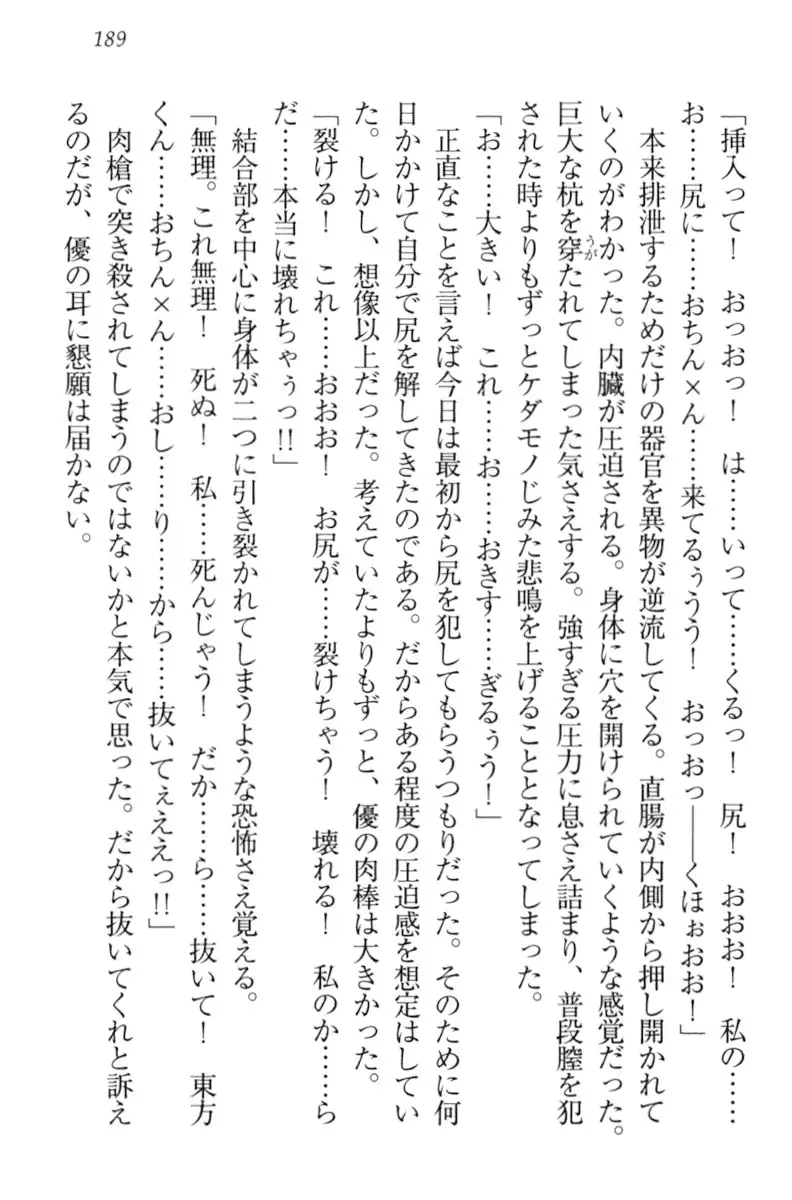 189
「挿入って！　おっおっ！　は……いって……くるっ！　尻！　おおお！　私の……
お……尻に……おちん×ん……来てるぅうう！　おっおっ――くほぉおお！」
　本来排泄するためだけの器官を異物が逆流してくる。直腸が内側から押し開かれて
いくのがわかった。内臓が圧迫される。身体に穴を開けられていくような感覚だった。
巨大な杭を穿たれてしまった気さえする。強すぎる圧力に息さえ詰まり、普段膣を犯
された時よりもずっとケダモノじみた悲鳴を上げることとなってしまった。
「お……大きい！　これ……お……おきす……ぎるぅう！」
　正直なことを言えば今日は最初から尻を犯してもらうつもりだった。そのために何
日かかけて自分で尻を解してきたのである。だからある程度の圧迫感を想定はしてい
た。しかし、想像以上だった。考えていたよりもずっと、優の肉棒は大きかった。
「裂ける！　これ……おおお！　お尻が……裂けちゃう！　壊れる！　私のか……ら
だ……本当に壊れちゃぅっ!!」
　結合部を中心に身体が二つに引き裂かれてしまうような恐怖さえ覚える。
「無理。これ無理！　死ぬ！　私……死んじゃう！　だか……ら……抜いて！　東方
くん……おちん×ん……おし……り……から……抜いてぇええっ!!」
　肉槍で突き殺されてしまうのではないかと本気で思った。だから抜いてくれと訴え
るのだが、優の耳に懇願は届かない。